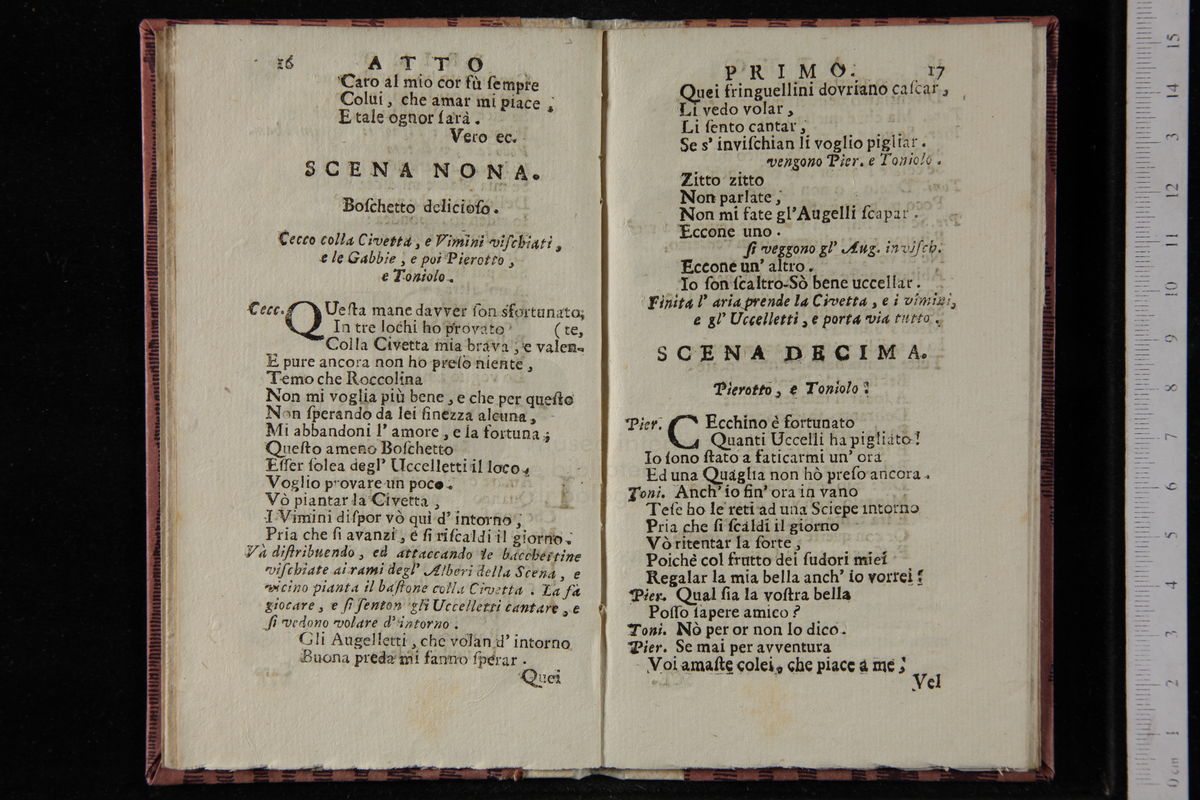 16 ATTO
Caro al mio cor fù ſempre
Colui, che amar mi piace,
E tale ognor ſarà.
Vero ec.
SCENA NONA.
Boſchetto delicioſo.
Cecco colla Civetta, e Vimini viſchiati,
e le Gabbie, e poi Pierotto,
e Toniolo.
Cecc. QUeſta mane davver ſon sfortunato;
In tre lochi ho provato (te,
Colla Civetta mia brava, e valen-
E pure ancora non ho preſo niente,
Temo che Roccolina
Non mi voglia più bene, e che per queſto
Non ſperando da lei finezza alcuna,
Mi abbandoni l' amore, e la fortuna;
Queſto ameno Boſchetto
Eſſer ſolea degl' Uccelletti il loco.
Voglio provare un poco.
Vò piantar la Civetta,
I Vimini diſpor vò quì d' intorno,
Pria che ſi avanzi, e ſi riſcaldi il giorno.
Và diſtribuendo, ed attaccando le bacchettine
viſchiate ai rami degl' Alberi della Scena, e
vicino pianta il baſtone colla Civetta. La fà
giocare, e ſi ſenton gli Uccelletti cantare, e
ſi vedono volare d' intorno.
Gli Augelletti, che volan d' intorno
Buona preda mi fanno ſperar.
Quei
PRIMO. 17
Quei fringuellini dovriano caſcar,
Li vedo volar,
Li ſento cantar,
Se s' inviſchian li voglio pigliar.
vengono Pier. e Toniolo.
Zitto zitto
Non parlate,
Non mi fate gl' Augelli ſcapar.
Eccone uno.
ſi veggono gl' Aug. inviſch.
Eccone un' altro.
Io ſon ſcaltro-Sò bene uccellar.
Finita l' aria prende la Civetta, e i vimini,
e gl' Uccelletti, e porta via tutto.
SCENA DECIMA.
Pierotto, e Toniolo!
Pier. CEcchino è fortunato
Quanti Uccelli ha pigliato!
Io ſono ſtato a faticarmi un' ora
Ed una Quaglia non hò preſo ancora.
Toni. Anch' io fin' ora in vano
Teſe ho le reti ad una Sciepe intorno
Pria che ſi ſcaldi il giorno
Vò ritentar la ſorte,
Poichè col frutto dei ſudori miei
Regalar la mia bella anch' io vorrei!
Pier. Qual ſia la voſtra bella
Poſſo ſapere amico?
Toni. Nò per or non lo dico.
Pier. Se mai per avventura
Voi amaſte colei, che piace a me;
Vel